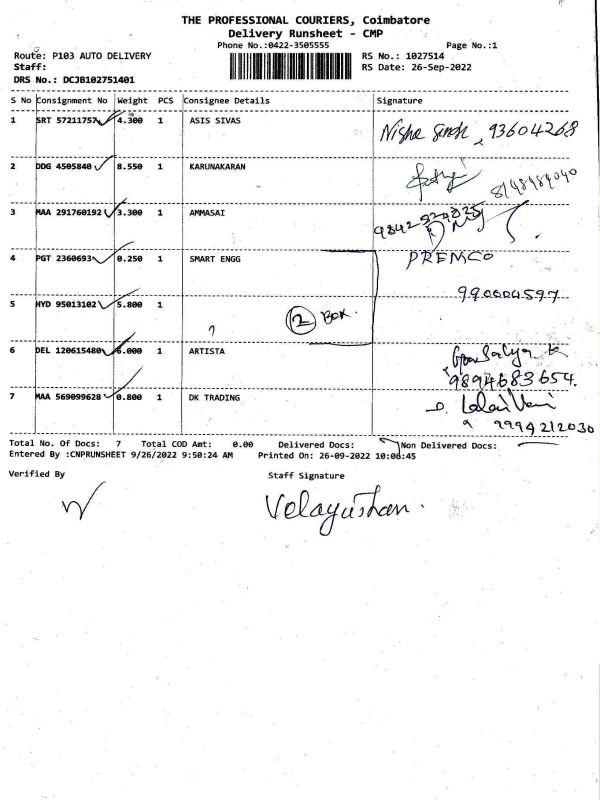 THE PROFESSIONAL COURIERS, Coimbatore
Delivery Runsheet - CMP
Phone No.:0422-3505555 Page No.:1
Route: P103 AUTO DELIVERY RS No.: 1027514
Staff: RS Date: 26-Sep-2022
DRS No.: DCJB102751401
S No Consignment No Weight PCS Consignee Details Signature
1 SRT 57211757 4.300 1 ASIS SIVAS
Nisha Singh, 93604268
2 DDG 4505840 8.550 1 KARUNAKARAN
3 MAA 291760192 3.300 1 AMMASAI
4 PGT 2360693 0.250 1 SMART ENGG PREMCO
990004597
5 HYD 95013102 5.800 1
2 BOX
6 DEL 120615480 6.000 1 ARTISTA
9894683654.
7 MAA 569099628 0.800 1 DK TRADING
9994212030
Total No. Of Docs: 7 Total COD Amt: 0.00 Delivered Docs: Non Delivered Docs:
Entered By :CNPRUNSHEET 9/26/2022 9:50:24 AM Printed On: 26-09-2022 10:06:45
Verified By Staff Signature
Velayuthan.